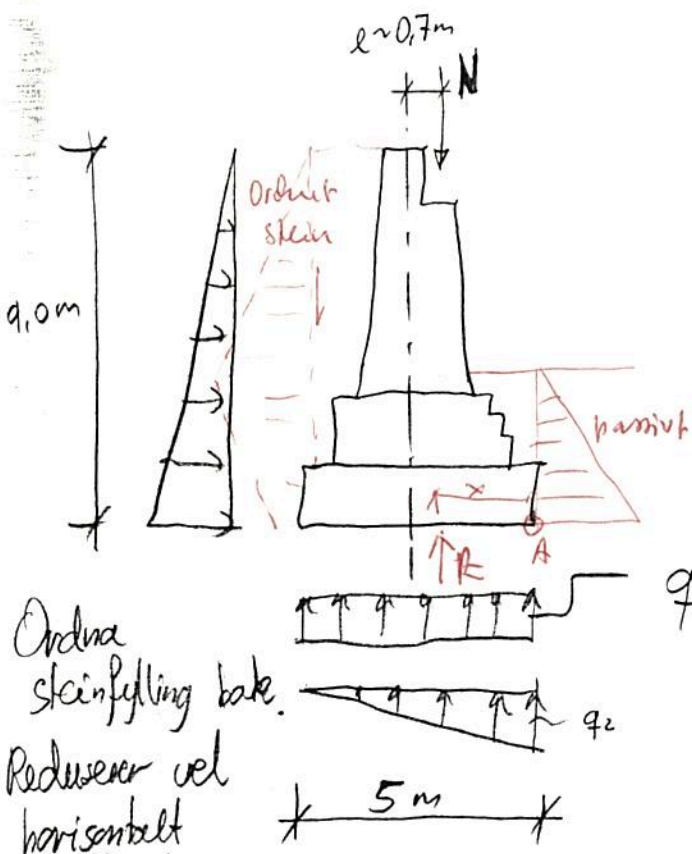 e~0,7m
N
Ordnet
stein
9,0m
passivt
x
A
R
q
Ordna
steinfylling bak.
q2
Reduserer vel
horisontalt
5 m